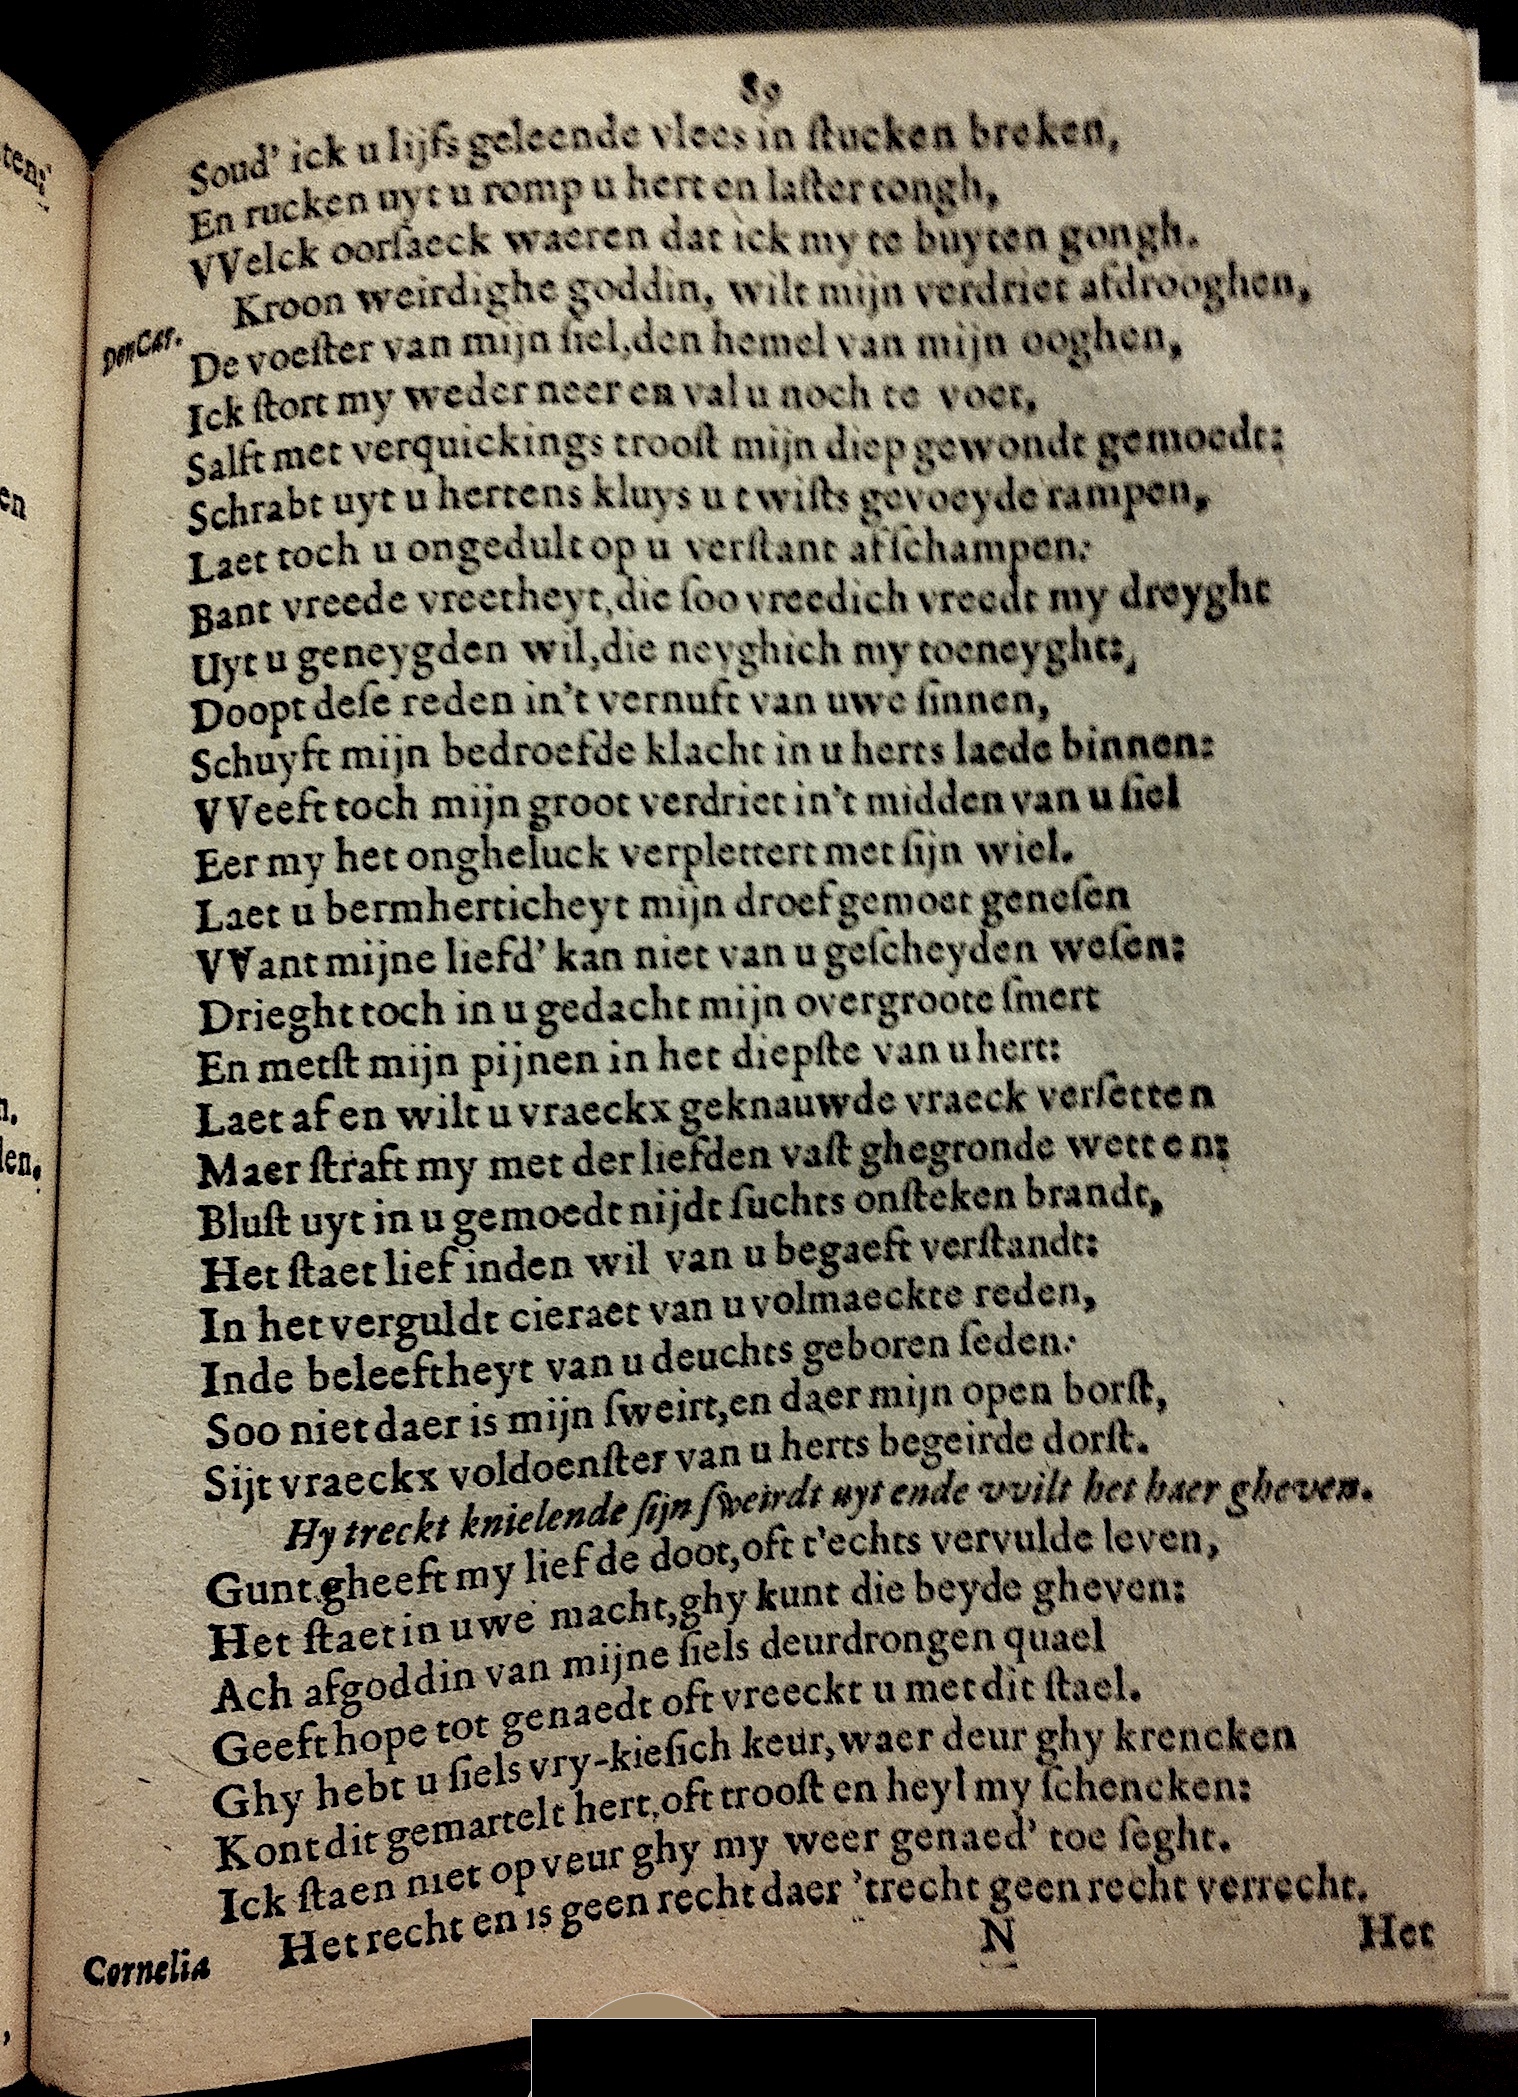 89
Soud' ick u lijfs geleende vlees in ſtucken breken,
En rucken uyt u romp u hert en laſter tongh,
VVelck oorſaeck waeren dat ick my te buyten gongh.
Don Car. Kroon weirdighe goddin, wilt mijn verdriet afdrooghen,
De voeſter van mijn ſiel, den hemel van mijn ooghen,
Ick ſtort my weder neer en val u noch te voet,
Salft met verquickings trooſt mijn diep gewondt gemoedt:
Schrabt uyt u hertens kluys u twiſts gevoeyde rampen,
Laet toch u ongedult op u verſtant afſchampen:
Bant vreede vreetheyt, die ſoo vreedich vreedt my dreyght
Uyt u geneygden wil, die neyghich my toeneyght:,
Doopt deſe reden in't vernuft van uwe ſinnen,
Schuyft mijn bedroefde klacht in u herts laede binnen:
VVeeft toch mijn groot verdriet in't midden van u ſiel
Eer my het ongheluck verplettert met ſijn wiel.
Laet u bermherticheyt mijn droef gemoet geneſen
VVant mijne liefd' kan niet van u geſcheyden weſen:
Drieght toch in u gedacht mijn overgroote ſmert
En metſt mijn pijnen in het diepſte van u hert:
Laet af en wilt u vraeckx geknauwde vraeck verſetten
Maer ſtraft my met der liefden vaſt ghegronde wetten:
Bluſt uyt in u gemoedt nijdt ſuchts onſteken brandt,
Het ſtaet lief inden wil van u begaeft verſtandt:
In het verguldt cieraet van u volmaeckte reden,
Inde beleeftheyt van u deuchts geboren ſeden:
Soo niet daer is mijn ſweirt, en daer mijn open borſt,
Sijt vraeckx voldoenſter van u herts begeirde dorſt.
Hy treckt knielende ſijn ſweirdt uyt ende vvilt het haer gheven.
Gunt gheeft my liefde doot, oft t'echts vervulde leven,
Het ſtaet in uwe macht, ghy kunt die beyde gheven:
Ach afgoddin van mijne ſiels deurdrongen quael
Geeft hope tot genaedt oft vreeckt u met dit ſtael.
Ghy hebt u ſiels vry-kieſich keur, waer deur ghy krencken
Kont dit gemartelt hert, oft trooſt en heyl my ſchencken:
Ick ſtaen niet op veur ghy my weer genaed' toe ſeght.
Cornelia Het recht en is geen recht daer 'trecht geen recht verrecht.
N Het